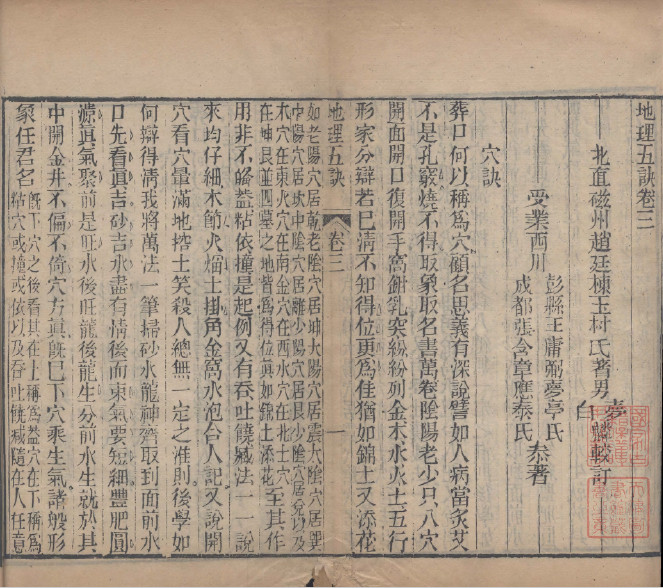 地理五訣卷三
北直磁州趙廷棟玉村氏著男
夢
白
麟較訂
受業西川
彭縣王庸弼慶亭氏
成都張含章應泰氏
叅著
穴訣
葬口何以稱爲穴顧名思義有深說譬如人病當炙艾
不是孔竅燒不得取象取名書萬卷陰陽老少只八穴
開面開口復開手窩鉗乳突紛紛列金木水火土五行
形家分辯若已清不知得位更爲佳猶如錦上又添花
如老陽穴居乾老陰穴居坤太陽穴居震太陰穴居巽
中陽穴居坎中陰穴居離少陽穴居艮少陰穴居兌以及
木穴在東火穴在南金穴在西水穴在北土穴
在坤艮並四墓之地皆爲得位真如錦上添花
至其作
地理五訣
卷三
一
用非不備葢粘依撞是起例又有吞吐饒減法一一說
來均仔細木節火熖土掛角金窩水泡合人記又說開
穴看穴暈滿地挖土笑殺人總無一定之准則後學如
何辯得清我將萬法一筆掃砂水龍神齊取到面前水
口先看眞吉砂吉水盡有情後面束氣要短細豐肥圓
㵎眞氣聚前是旺水後旺龍後龍生分前水生就於其
中開金井不偏不倚穴方真旣已下穴乘生氣諸般形
象任君名
旣下穴之後看其在上稱爲葢穴在下稱爲
粘穴或撞或依以及吞吐饒減隨在人任意